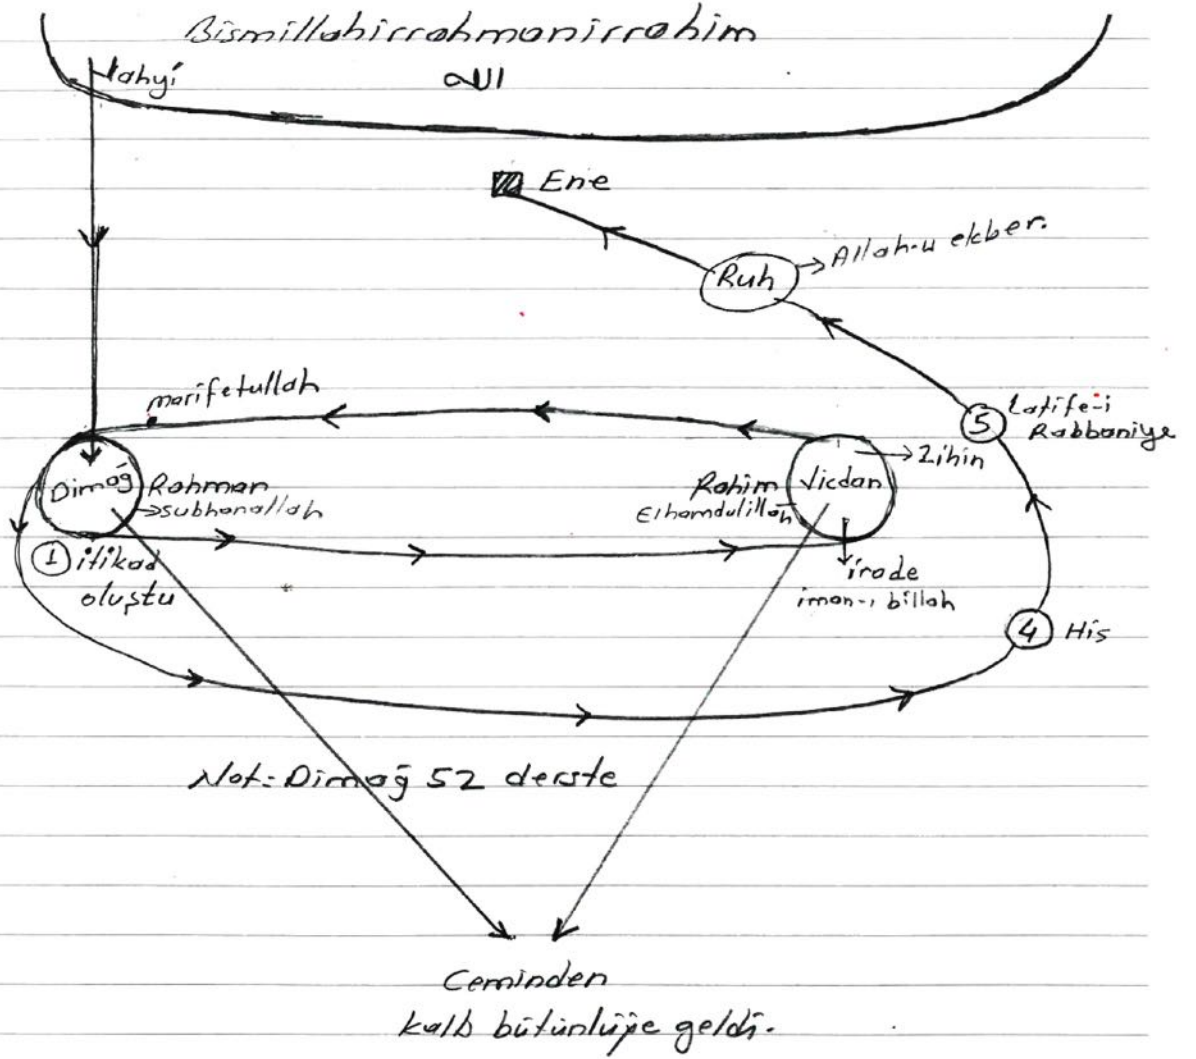 Bismillahirrahmanirrahim
Vahyi
الله
Ene
Ruh
Allah-u ekber.
marifetullah
5
Latife-i
Rabbaniye
Dimağ
Rahman
subhanallah
Rahim
Elhamdulillah
Vicdan
Zihin
1
itikad
oluştu
irade
iman-ı billah
4
His
Not: Dimağ 52 derste
Ceminden
kalb bütünlüğe geldi.